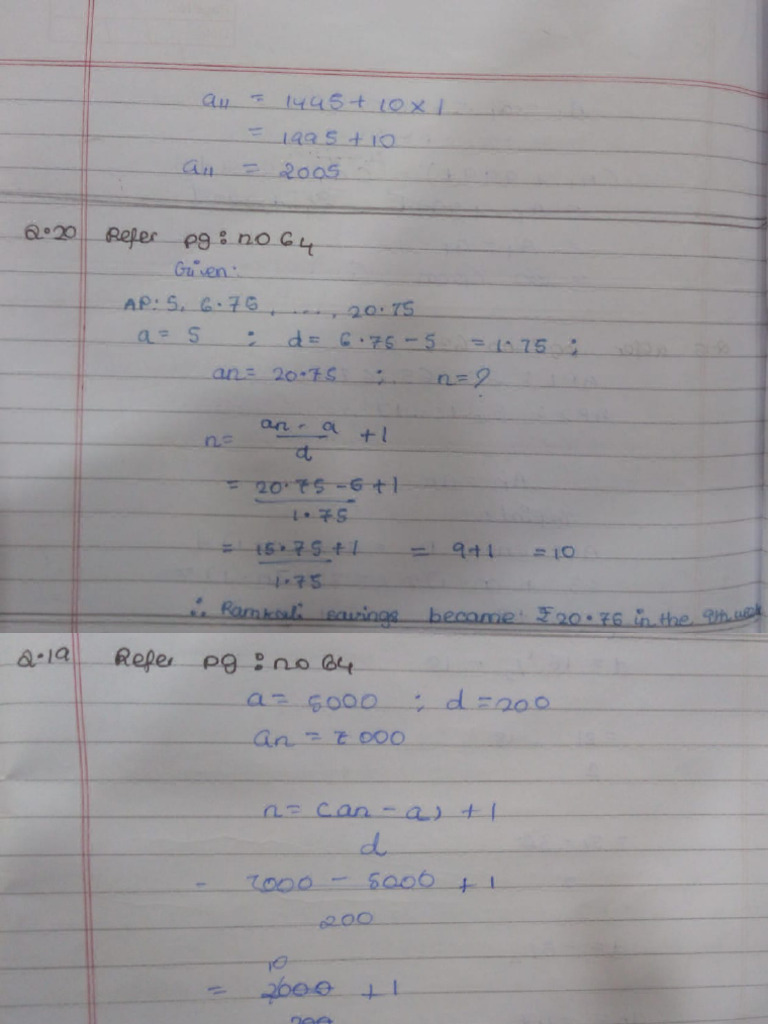 a11 = 1995 + 10 × 1
= 1995 + 10
a11 = 2005
Q.20 Refer pg: no 64
Given:
AP: 5, 6.75, ...., 20.75
a = 5 ; d = 6.75 - 5 = 1.75 ;
an = 20.75 ; n = ?
n = an - a / d + 1
= 20.75 - 5 + 1 / 1.75
= 15.75 + 1 / 1.75 = 9 + 1 = 10
∴ Ramkali savings became ₹20.75 in the 9th week
Q.19 Refer pg: no 64
a = 5000 ; d = 200
an = 7000
n = (an - a) + 1
d
= 7000 - 5000 + 1
200
10
= 2000 + 1
200